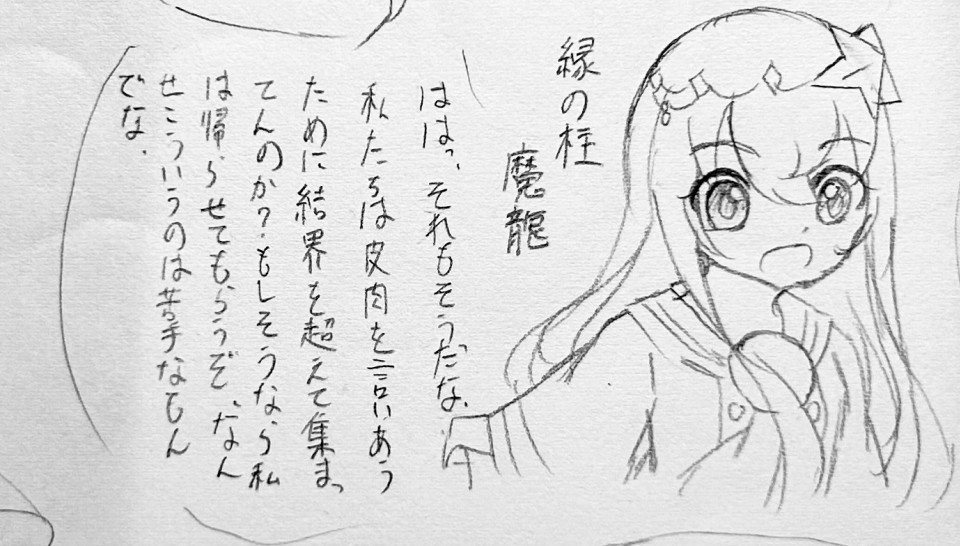 緑の柱
魔龍
はは、それもそうだな。
私たちは皮肉を言いあう
ために結界を超えて集まっ
てんのか?もしそうなら私
は帰らせてもらうぞ、なん
せこういうのは苦手なもん
でな、